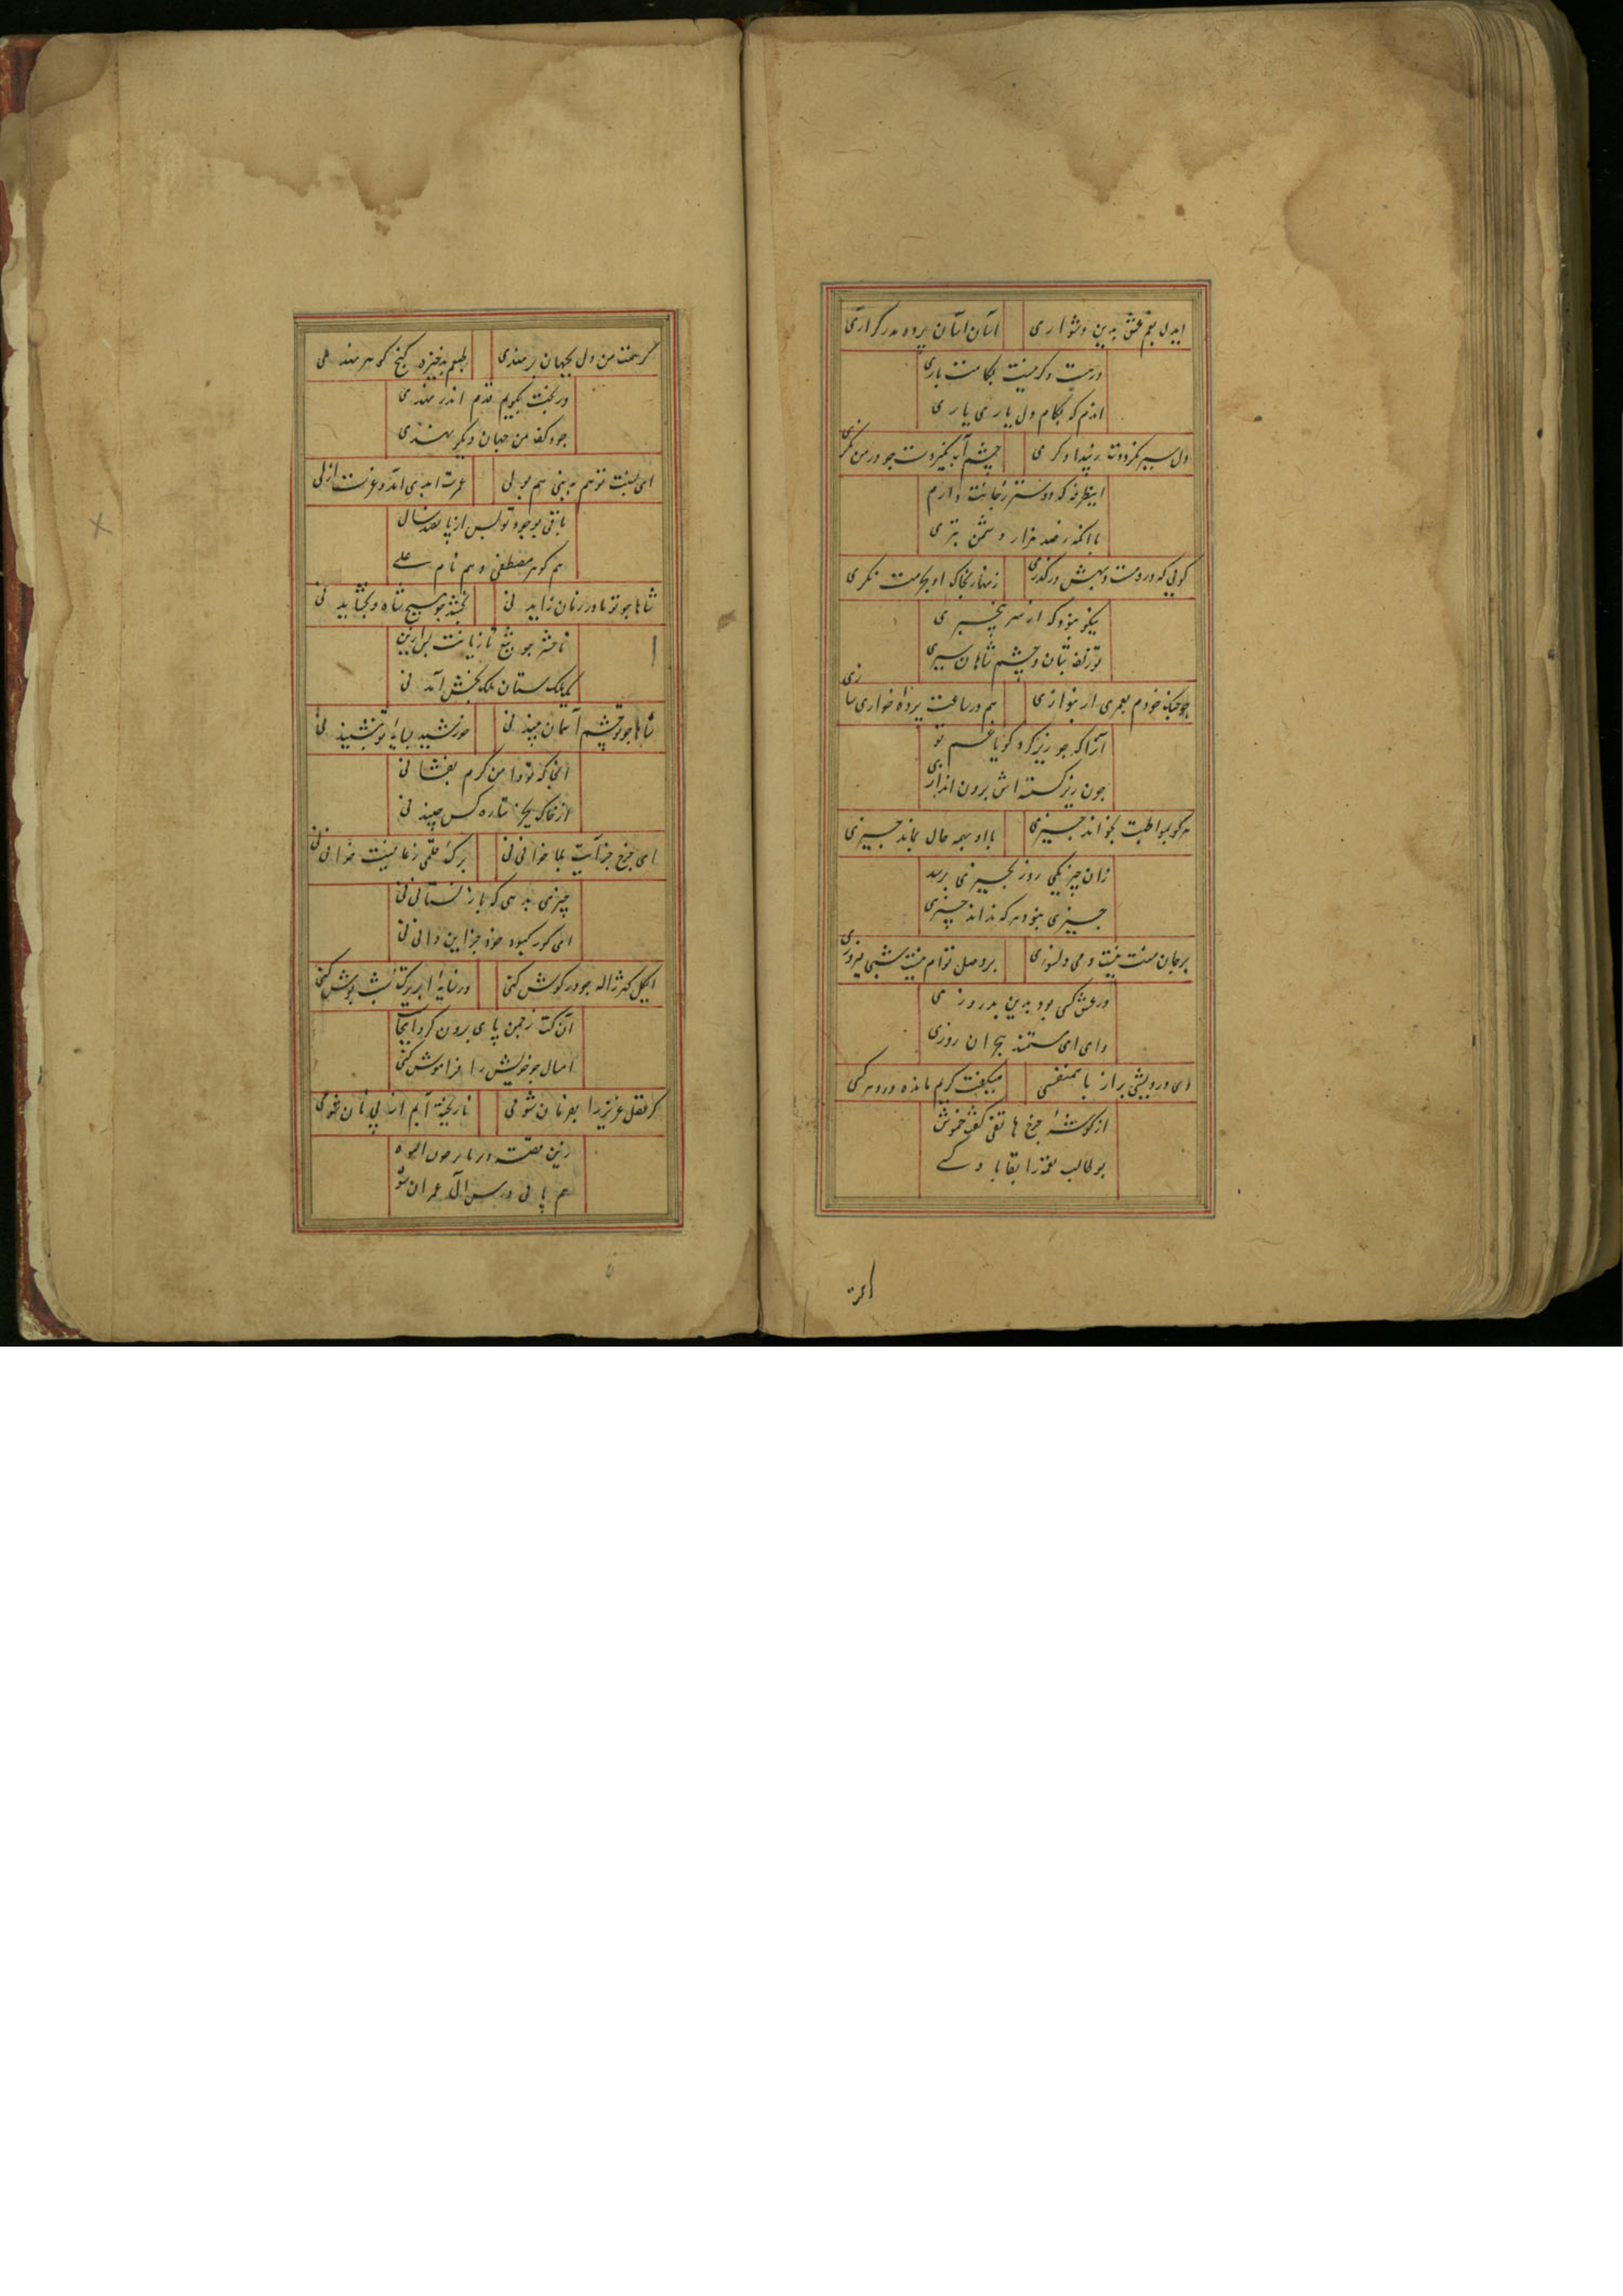 ایدل بغم عشق بدین دشواری آسان آسان پرده مدر گر آری
دریت و کرنیت بکامت باری
اندم که بکام دل یاری یاری
دل سیر نکرددت ز بیدادگری چشم آب نگیردت چو در من نگری
اینطرفه که دوستر ز جانت دارم
با آنکه ز صد هزار دشمن بتری
کویی که درو مست و بهش درگذری زنهار بخاک او بحرمت نگری
نیکو نبود که از سر بیخبری
تو زلف بتان و چشم شاهان سپری
چو چنک خودم بعمری ار بنوازی هم در ساعت پرده خواری سازی
آنرا که چو زیر کرد کویا غم تو
چون زیر کسسته اش برون اندازی
هر کو بمواظبت بخواند چیزی با او بهمه حال بماند چیزی
زان چیز یکی روز بچیزی برسد
چیزی نبود هر که نداند چیزی
بر جان منت نیست دمی دلسوزی بر وصل توام نیست شبی پیروزی
در عشق کسی بود بدین بد روزی
وای ای ستمند هجران روزی
دی درویشی براز با همنفسی میگفت کرم مانده در دهر کسی
از کوشه چرخ هاتفی گفت خموش
بوطالب نغمه را بقا باد کسی
گر همت من دل بجهان بر نهدی طبعم بذخیره گنج گوهر نهدی
ور بخت بکویم قدم اندر نهدی
جود کف من جهان دیگر بنهدی
ای نسبت تو هم به نبی هم بولی عمرت ابدی آمد و عزت ازلی
باقی بوجود تو پس از پانصد سال
هم گوهر مصطفی و هم نام علی
شاها چو تو مادر زمان زاید نی بخشد چو تو هیچ شاه و بخشاید نی
تا حشر چو تیغ تازیانت پس ازین
یک ملک ستان ملک بخش آید نی
شاها چو تو چشم آسمان بیند نی خورشید بسایه تو بنشیند نی
آنجا که تو دامن کرم بفشانی
از خاک بجز ستاره کس چیند نی
ای چرخ جز آیت بلا خوانی نی برک قلمی ز عافیت خوانی نی
چیزی بدهی که باز نستانی نی
ای کور کبود خود جز این دانی نی
ای گل گهر ژاله چو در گوش کنی در سایه ابر برک شب پوش کنی
آن کت ز چمن پای برون کرد اینجا
امسال چو خویش را فراموش کنی
گر نقل عزیز را بغم نان شوی نا ریخته آبم از پی نان شوی
هم یابی درس آل عمران شو